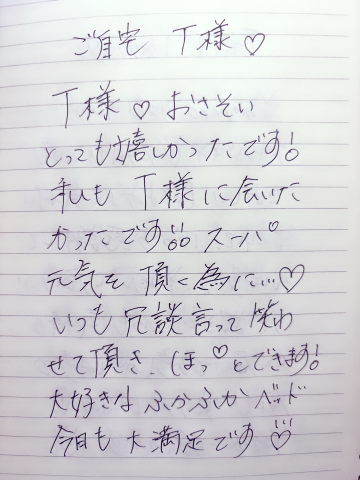 ご自宅 T様♡
T様♡おさそい
とっても嬉しかったです!
私も T様に会いた
かったです!!スーパー
元気を頂く為に…♡
いつも冗談言って笑わ
せて頂き、ほっ♡とできます!
大好きなふかふかベッド
今日も大満足です♡